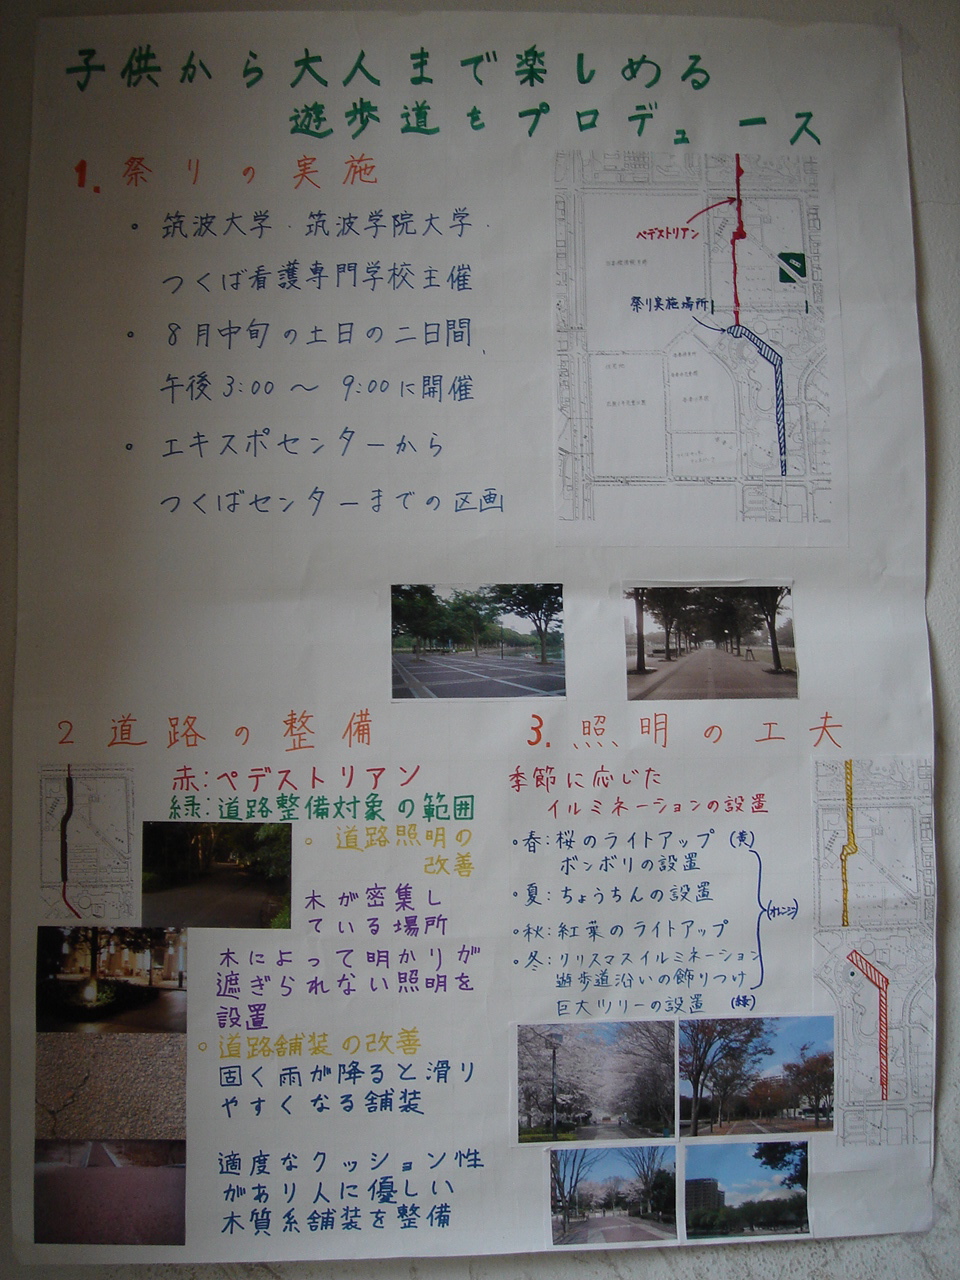 子供から大人まで楽しめる
遊歩道をプロデュース
1. 祭りの実施
・筑波大学・筑波学院大学・
つくば看護専門学校主催
・8月中旬の土日の二日間、
午後3:00～9:00に開催
・エキスポセンターから
つくばセンターまでの区画
ペデストリアン
祭り実施場所
2 道路の整備
赤:ペデストリアン
緑:道路整備対象の範囲
○道路照明の
改善
木が密集し
ている場所
木によって明かりが
遮ぎられない照明を
設置
○道路舗装の改善
固く雨が降ると滑り
やすくなる舗装
適度なクッション性
があり人に優しい
木質系舗装を整備
3. 照明の工夫
季節に応じた
イルミネーションの設置
・春:桜のライトアップ (黄)
ボンボリの設置
・夏:ちょうちんの設置
・秋:紅葉のライトアップ
(オレンジ)
・冬:クリスマスイルミネーション
遊歩道沿いの飾りつけ
巨大ツリーの設置 (緑)